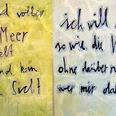 d voller
Meer
elt
und kein
Sucht
ich will
so wie die
ohne darüber n
wer mir da